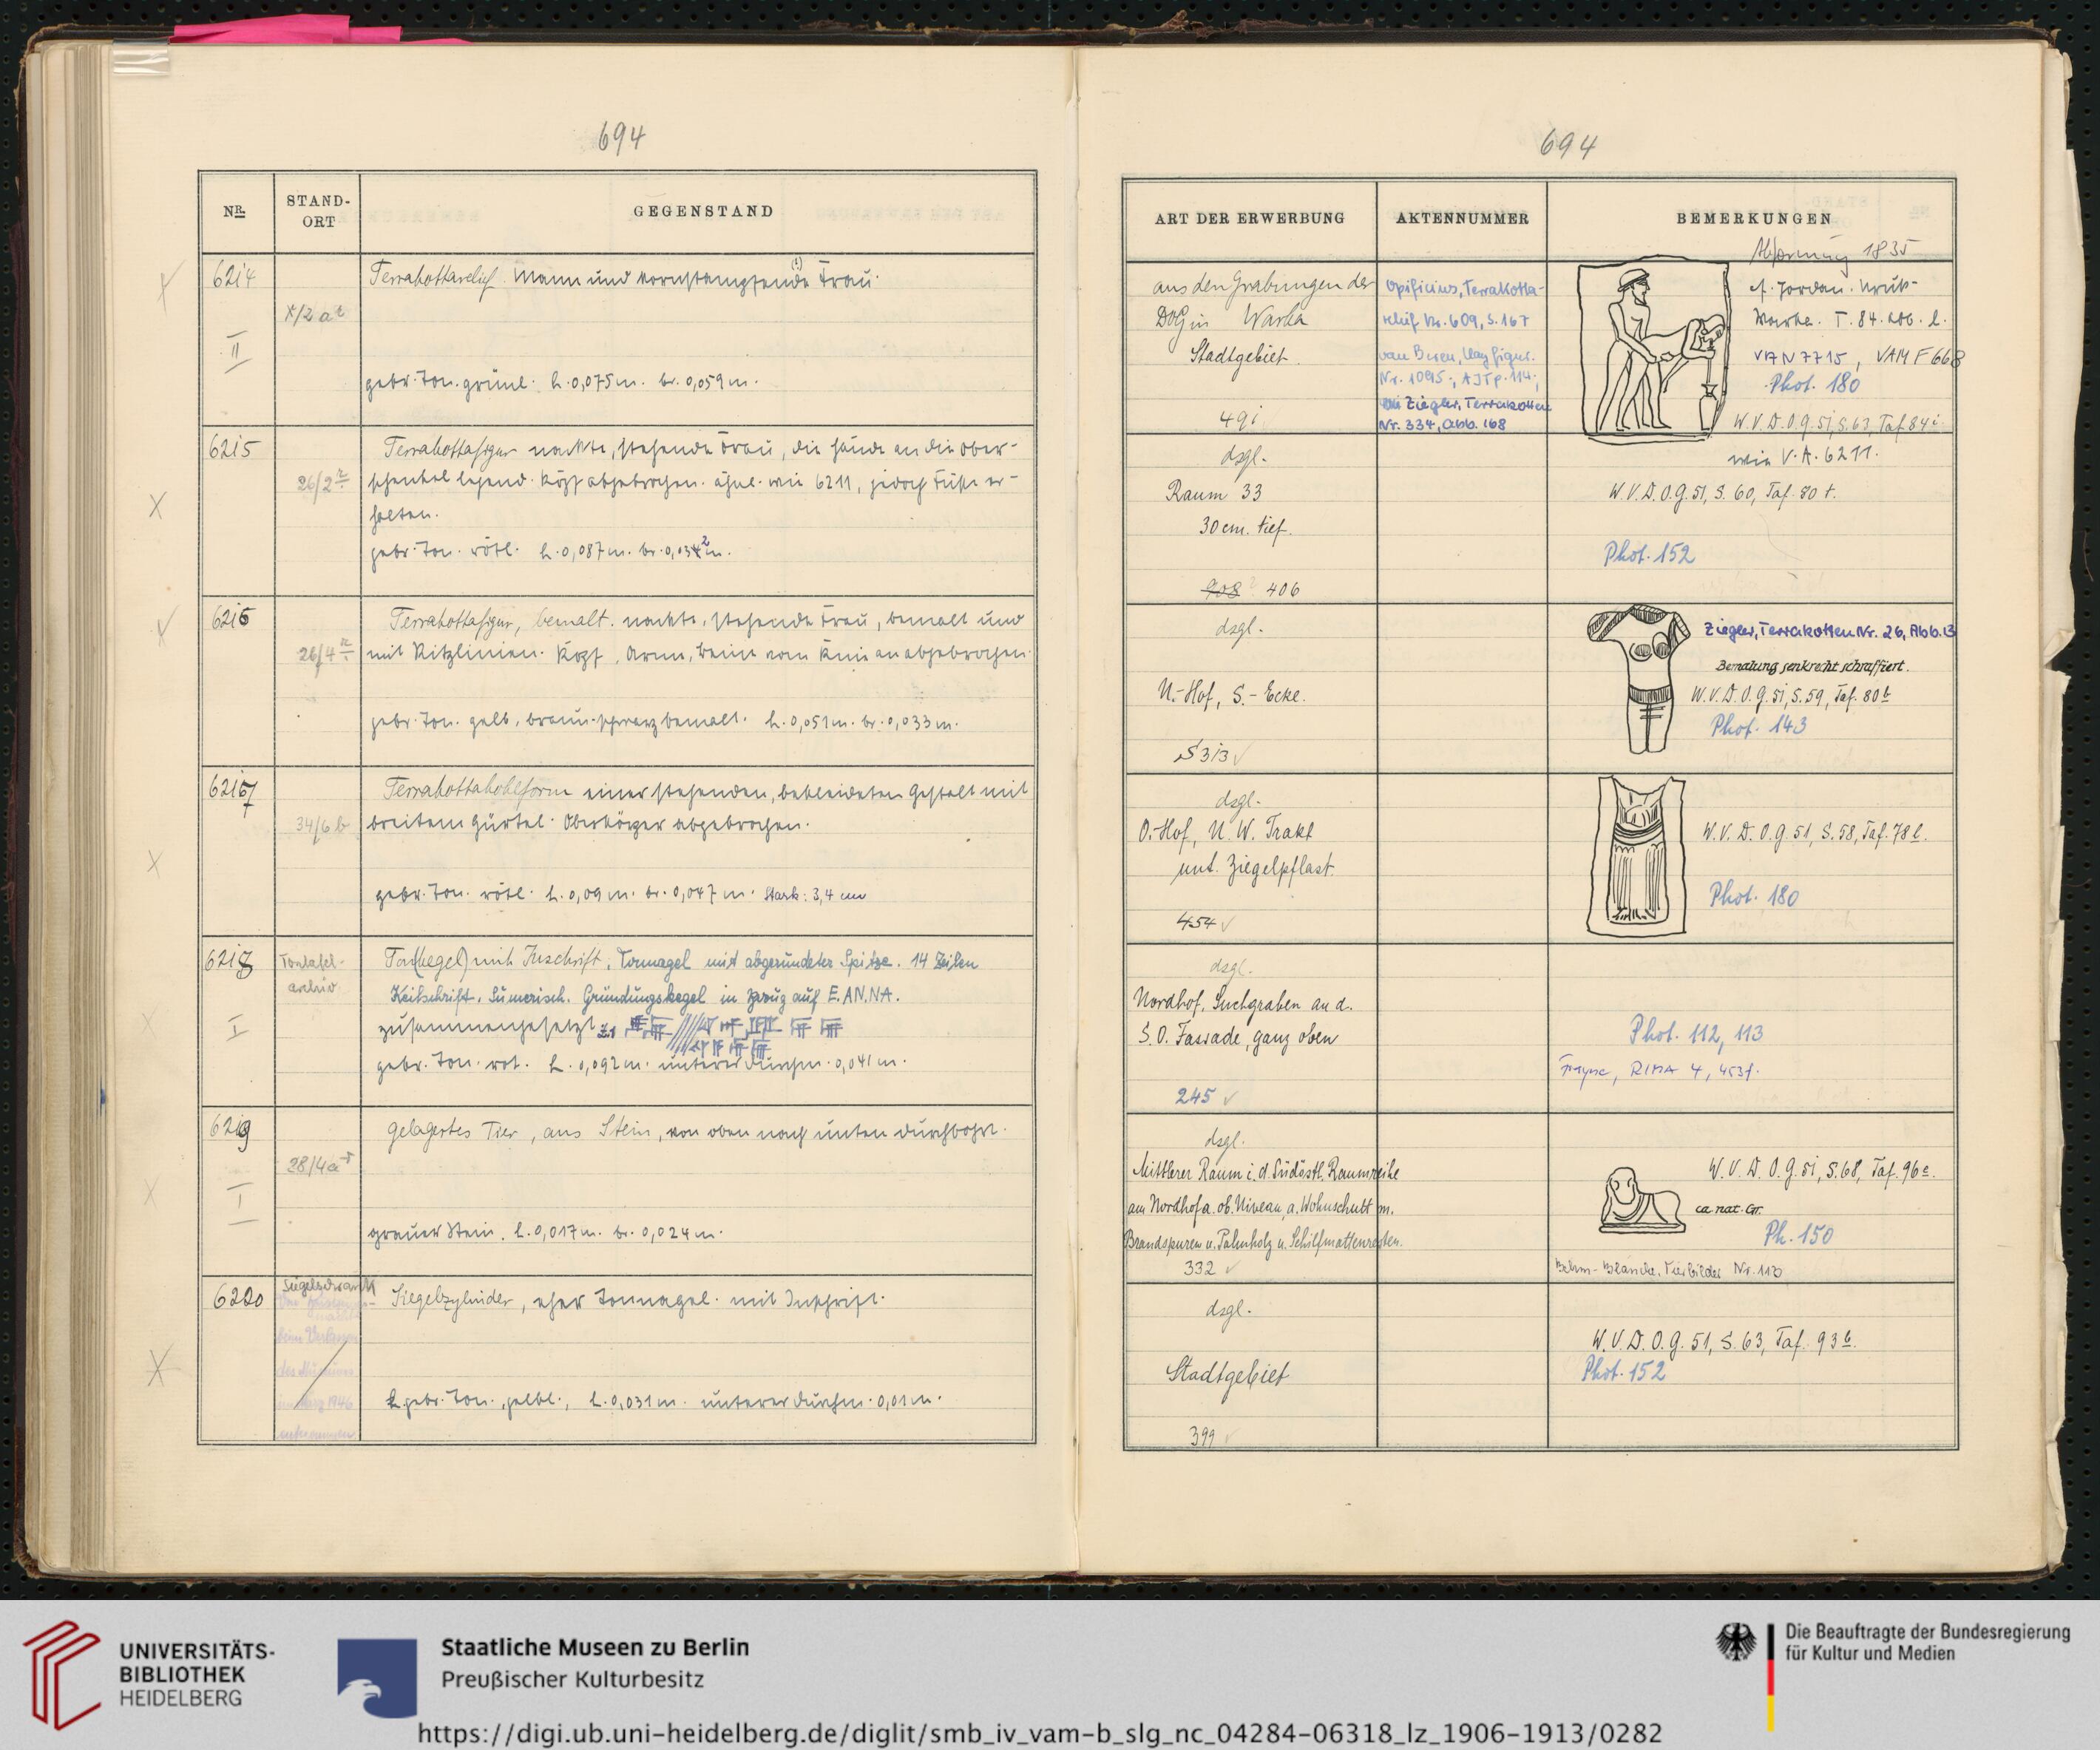 694
NR.
STAND-
ORT
GEGENSTAND
6214
II
Terrakottarelief. Mann und kornstampfende (?) Frau.
gebr. Ton. grünl. h. 0,075 m. br. 0,059 m.
6215
26/2
Terrakottafigur nackte, stehende Frau, die Hände an die Ober-
schenkel legend. Kopf abgebrochen. ähnl. wie 6211, jedoch Füße er-
halten.
gebr. Ton. rötl. h. 0,087 m. br. 0,034 m.
6216
26/4
Terrakottafigur, bemalt. nackte, stehende Frau, bemalt und
mit Ritzlinien. Kopf, Arme, Beine vom Knie an abgebrochen.
gebr. Ton. gelb, braun-schwarz bemalt. h. 0,051 m. br. 0,033 m.
6217
34/6 b
Terrakottahohlform einer stehenden, bekleideten Gestalt mit
breitem Gürtel. Oberkörper abgebrochen.
gebr. Ton. rötl. h. 0,09 m. br. 0,047 m. Stark: 3,4 cm
6218
Tontafel-
archiv
I
Ton(kegel) mit Inschrift. Tonnagel mit abgerundeter Spitze. 14 Zeilen
Keilschrift. Sumerisch. Gründungskegel in Bezug auf E.AN.NA.
zusammengesetzt
gebr. Ton. rot. h. 0,092 m. unterer Durchm. 0,041 m.
6219
28/4a
I
Gelagertes Tier, aus Stein, von oben nach unten durchbohrt.
grauer Stein. h. 0,017 m. br. 0,024 m.
6220
Siegelschrank
beim Verlassen
des Museums
1946
Siegelzylinder, eher Tonnagel. mit Inschrift.
gebr. Ton., gelbl., h. 0,031 m. unterer Durchm. 0,01 m.
694
ART DER ERWERBUNG
AKTENNUMMER
BEMERKUNGEN
Abformung 1835
aus den Grabungen der
DOG in Warka
Stadtgebiet.
49i
Opificius, Terrakotta-
relief Nr. 609, S. 167
van Buren, Clay Figur.
Nr. 1095; AJTp. 114;
Ziegler, Terrakotten
Nr. 334, Abb. 168
cf. Jordan. Uruk-
Warka. T. 84. Abb. l.
VAN 7715, VAM F 668
Phot. 180
W.V.D.O.G. 51, S. 63, Taf. 84 i.
dsgl.
Raum 33
30 cm. tief.
908 ? 406
wie V.A. 6211.
W.V.D.O.G. 51, S. 60, Taf. 80 t.
Phot. 152
dsgl.
N.-Hof, S.-Ecke.
S 313
Ziegler, Terrakotten Nr. 26, Abb. 13
Bemalung senkrecht schraffiert.
W.V.D.O.G. 51, S. 59, Taf. 80 b
Phot. 143
dsgl.
O.-Hof, N.W. Trakt
unt. Ziegelpflast.
454
W.V.D.O.G. 51, S. 58, Taf. 78 l.
Phot. 180
dsgl.
Nordhof, Suchgraben an d.
S.O. Fassade, ganz oben
245
Phot. 112, 113
Frayne, RIMA 4, 453f.
dsgl.
Mittlerer Raum i. d. Südöstl. Raumreihe
am Nordhof a. ob. Niveau, a. Wohnschutt m.
Brandspuren u. Palmholz u. Schilfmattenresten.
332
W.V.D.O.G. 51, S. 68, Taf. 96 c.
ca nat. Gr.
Ph. 150
Behm-Blancke, Tierbilder Nr. 113
dsgl.
Stadtgebiet
399
W.V.D.O.G. 51, S. 63, Taf. 93 b.
Phot. 152
UNIVERSITÄTS-
BIBLIOTHEK
HEIDELBERG
Staatliche Museen zu Berlin
Preußischer Kulturbesitz
Die Beauftragte der Bundesregierung
für Kultur und Medien
https://digi.ub.uni-heidelberg.de/diglit/smb_iv_vam-b_slg_nc_04284-06318_lz_1906-1913/0282